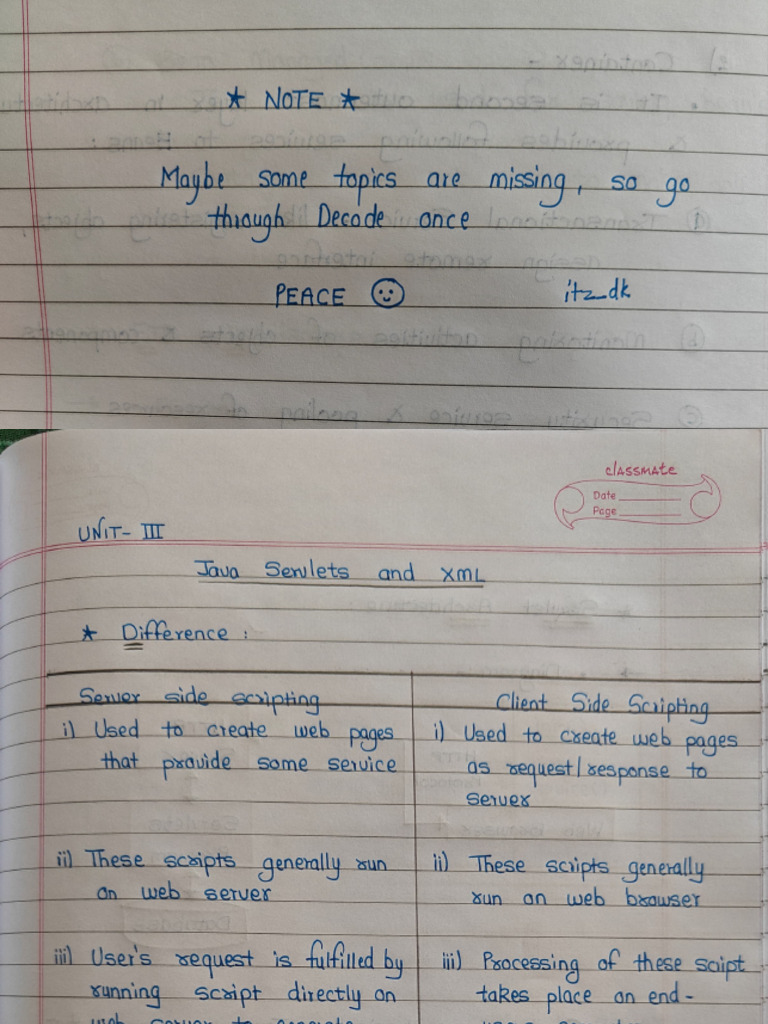 ★ NOTE ★
Maybe some topics are missing, so go
through Decode once
PEACE itz_dk
classmate
Date
Page
UNIT- III
Java Servlets and XML
★ Difference :
Server side scripting
i) Used to create web pages
that provide some service
ii) These scripts generally run
on web server
iii) User's request is fulfilled by
running script directly on
Client Side Scripting
i) Used to create web pages
as request/response to
server
ii) These scripts generally
run on web browser
iii) Processing of these script
takes place on end-